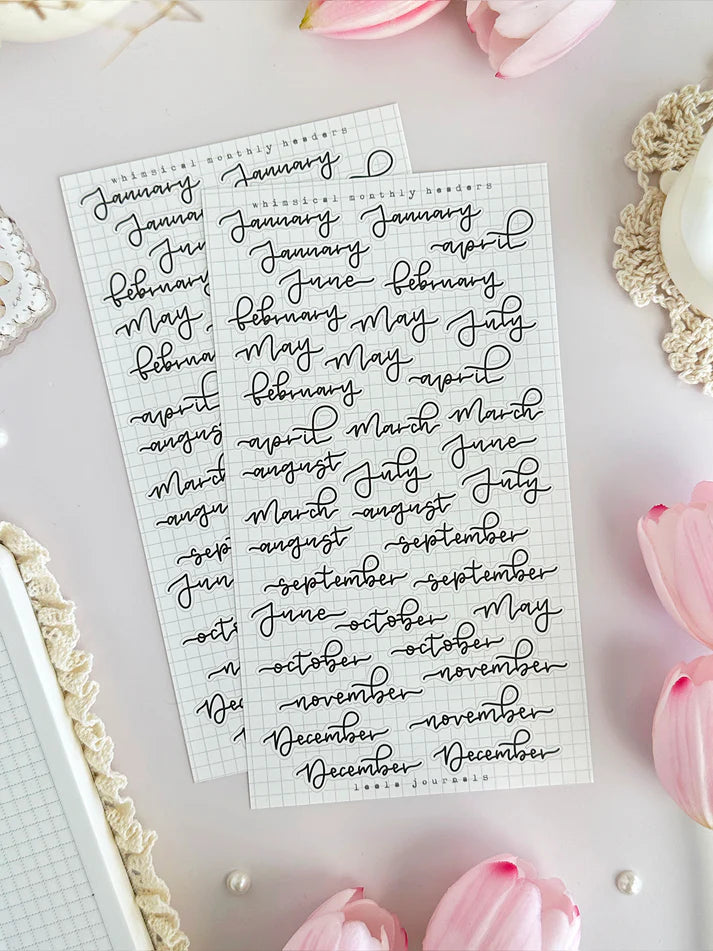 whimsical monthly headers
January January
february
May
april
whimsical monthly headers
January January
January april
June february
february May July
May May
february april
april March March
august July June
March august July
august september
september september
June october May
october october
november november
December november
December December
leela journals